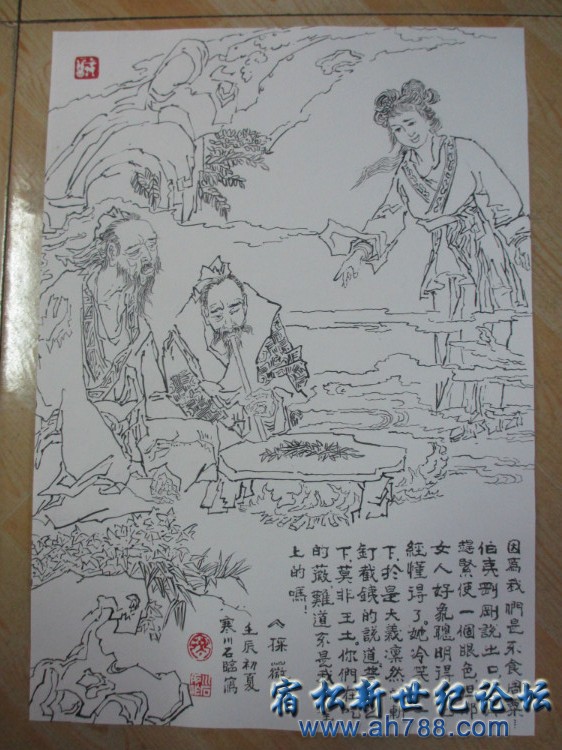 因為我們是不食周粟
伯夷剛剛說出口
趕緊使一個眼色但那
女人好象聰明得
經懂得了她冷笑
下,於是大義凜然
釘截鐵的說道
下,莫非王土,你們
的薇難道不是我
上的嗎!
《採薇》
壬辰初夏
寒川石臨寫
宿松新世纪论坛
www.ah788.com